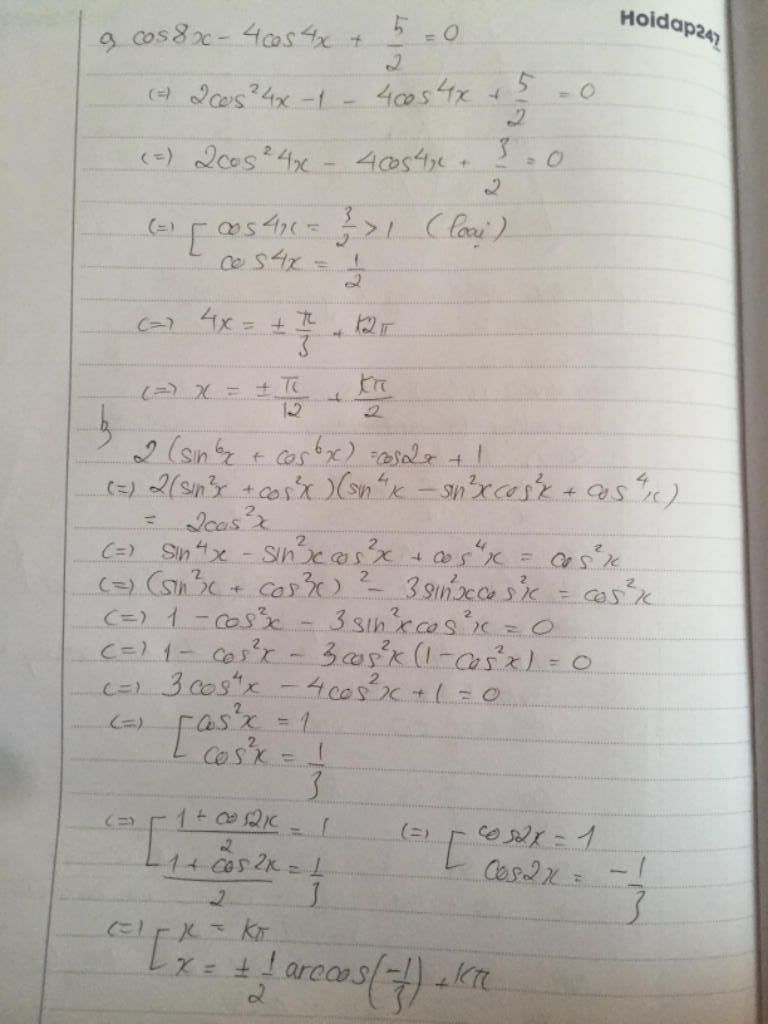 Hoidap247
a, cos8x - 4cos4x + 5/2 = 0
(=) 2cos²4x - 1 - 4cos4x + 5/2 = 0
(=) 2cos²4x - 4cos4x + 3/2 = 0
(=) [ cos4x = 3/2 > 1 (loại)
cos4x = 1/2
(=) 4x = ± π/3 + k2π
(=) x = ± π/12 + kπ/2
b,
2(sin⁶x + cos⁶x) = cos2x + 1
(=) 2(sin²x + cos²x)(sin⁴x - sin²xcos²x + cos⁴x)
= 2cos²x
(=) sin⁴x - sin²xcos²x + cos⁴x = cos²x
(=) (sin²x + cos²x)² - 3sin²xcos²x = cos²x
(=) 1 - cos²x - 3sin²xcos²x = 0
(=) 1 - cos²x - 3cos²x(1 - cos²x) = 0
(=) 3cos⁴x - 4cos²x + 1 = 0
(=) [ cos²x = 1
cos²x = 1/3
(=) [ (1 + cos2x)/2 = 1 (=) [ cos2x = 1
(1 + cos2x)/2 = 1/3 cos2x = -1/3
(=) [ x = kπ
x = ± 1/2 arccos(-1/3) + kπ